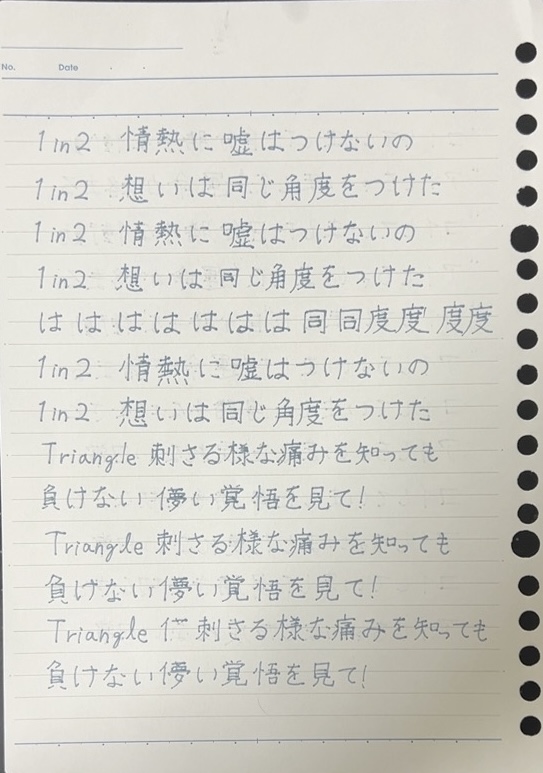 No. Date
1 in 2 情熱に嘘はつけないの
1 in 2 想いは同じ角度をつけた
1 in 2 情熱に嘘はつけないの
1 in 2 想いは同じ角度をつけた
は は は は は は は 同 同 度 度 度 度
1 in 2 情熱に嘘はつけないの
1 in 2 想いは同じ角度をつけた
Triangle 刺さる様な痛みを知っても
負けない 儚い覚悟を見て!
Triangle 刺さる様な痛みを知っても
負けない儚い覚悟を見て!
Triangle 刺さる様な痛みを知っても
負けない儚い覚悟を見て!